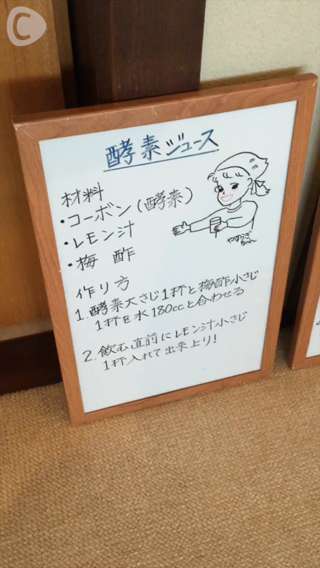 酵素ジュース
材料
・コーボン(酵素)
・レモン汁
・梅酢
作り方
1.酵素大さじ1杯と梅酢小さじ
1杯を水180ccと合わせる
2.飲む直前にレモン汁小さじ
1杯入れて出来上り!